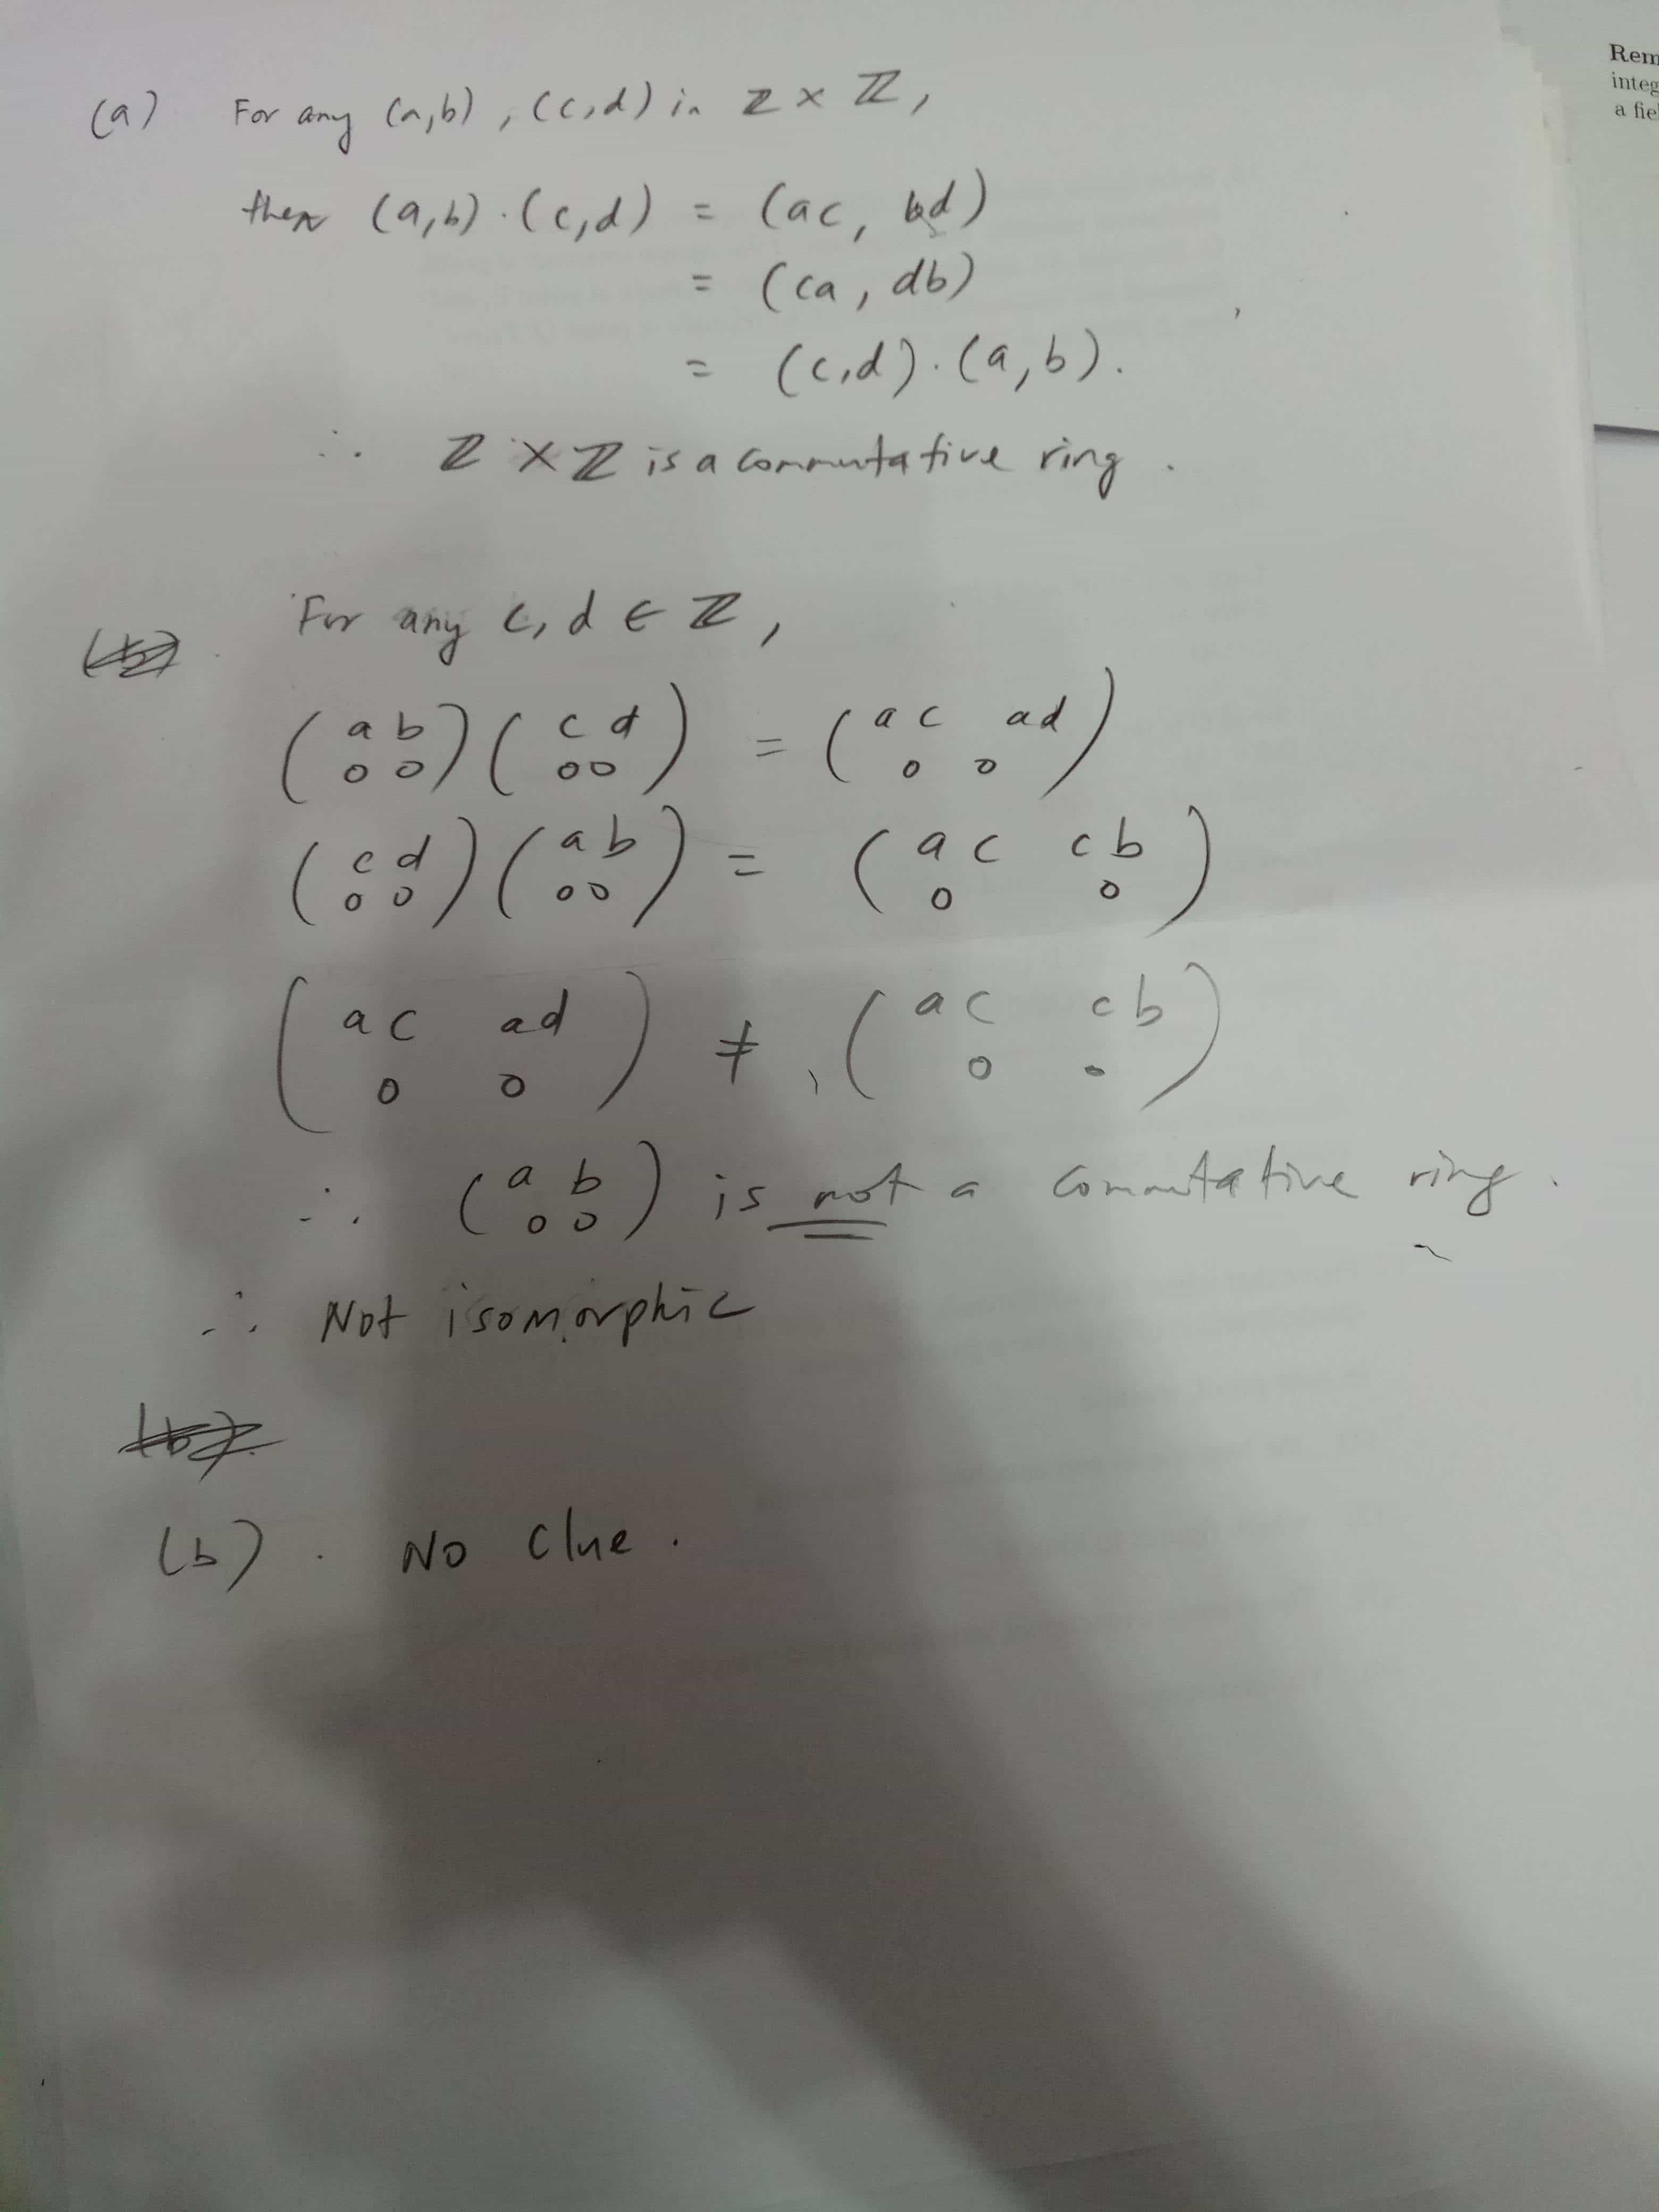 Rem
integ
a fie
(a) For any (a,b), (c,d) in ℤ × ℤ,
then (a,b)·(c,d) = (ac, bd)
= (ca, db)
= (c,d)·(a,b).
∴ ℤ × ℤ is a commutative ring.
(b)
For any c, d ∈ ℤ,
(a b; 0 0)(c d; 0 0) = (ac ad; 0 0)
(c d; 0 0)(a b; 0 0) = (ac cb; 0 0)
(ac ad; 0 0) ≠ (ac cb; 0 0)
∴ (a b; 0 0) is not a commutative ring.
∴ Not isomorphic
(b)
(b). No Clue.